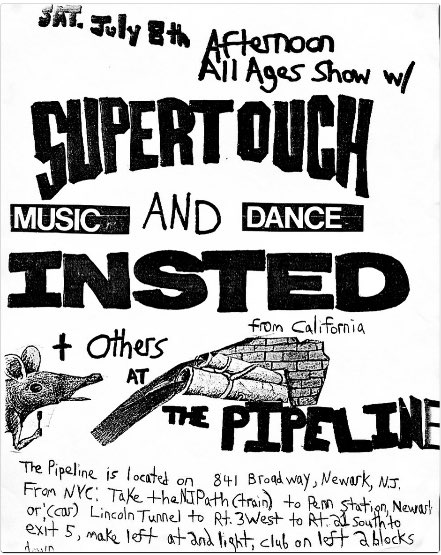 SAT. July 8th
Afternoon
All Ages Show w/
SUPERTOUCH
MUSIC AND DANCE
INSTED
from California
+ Others
AT
THE PIPELINE
The Pipeline is located on 841 Broadway, Newark, N.J.
From NYC: Take the NJ Path (train) to Penn Station, Newark
or; (car) Lincoln Tunnel to Rt. 3 West to Rt. 21 South to
exit 5, make left at 2nd light, club on left 2 blocks
down